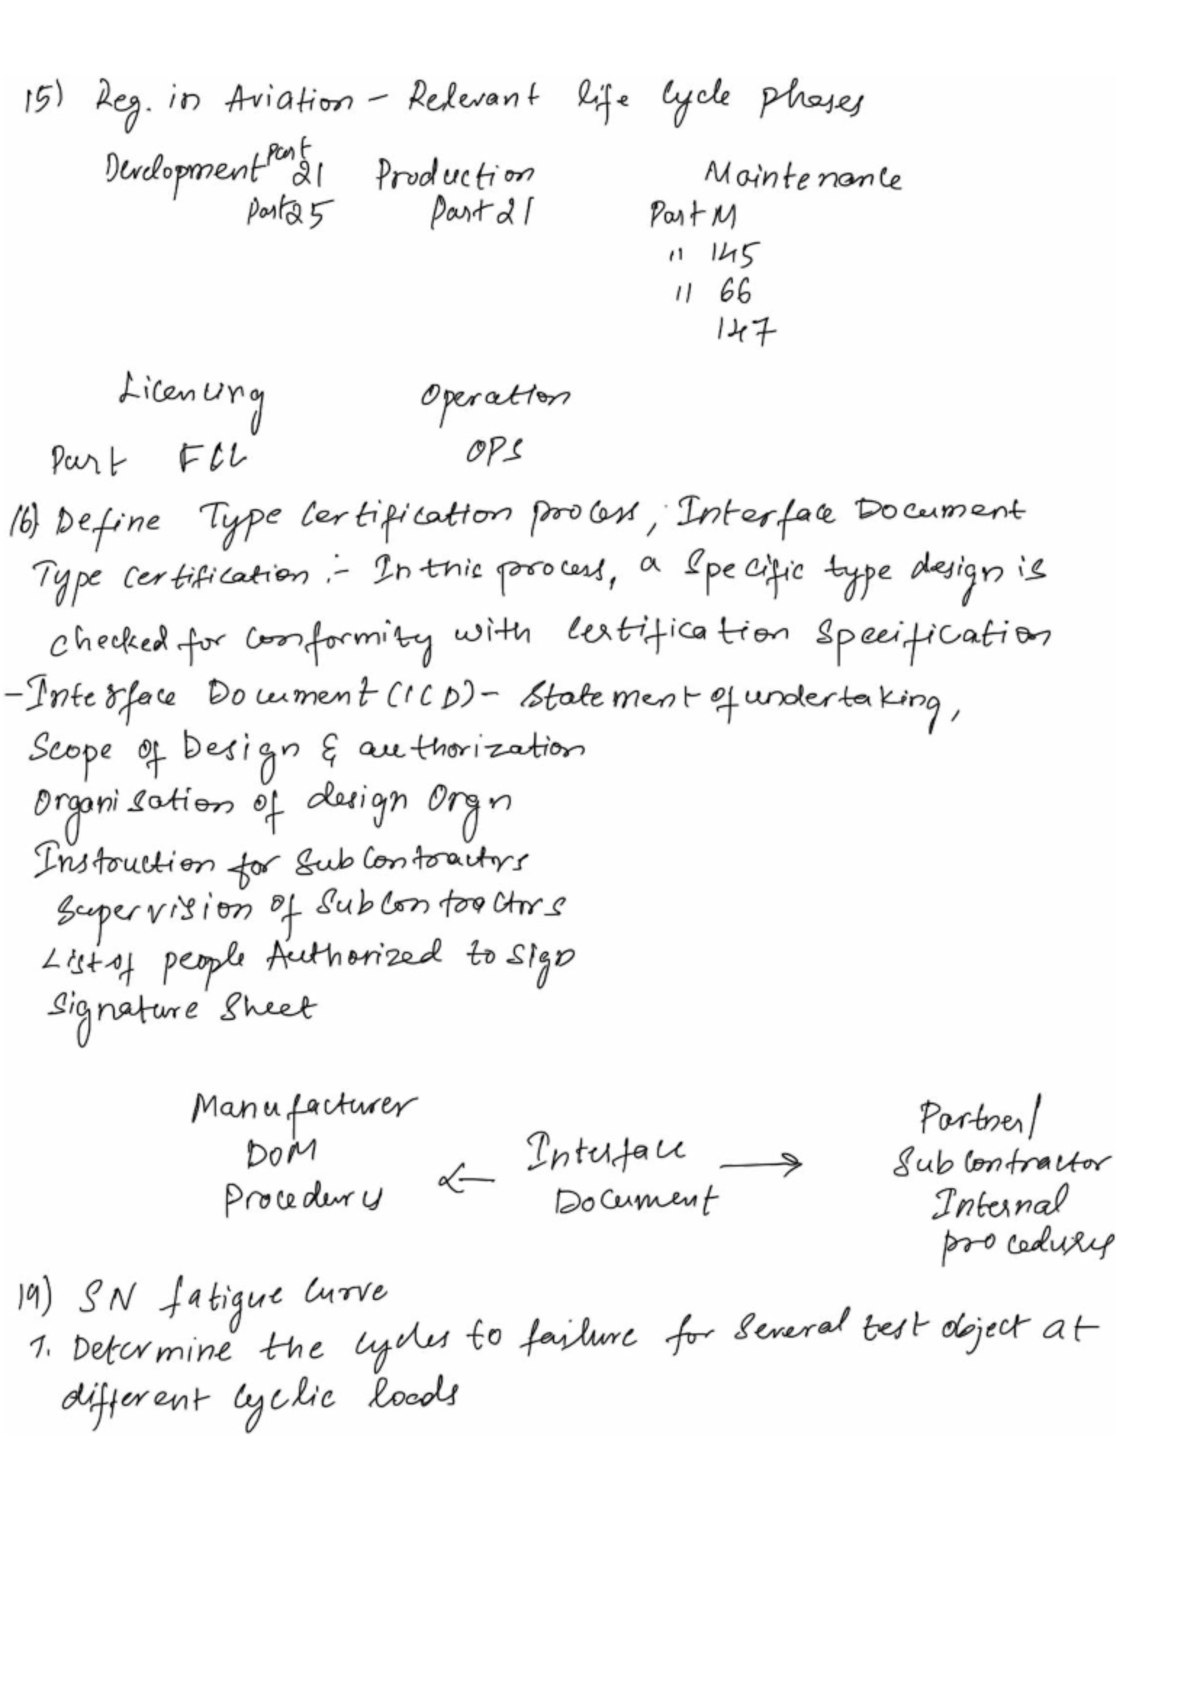 15) Reg. in Aviation - Relevant life cycle phases
Development Part 21 Production Maintenance
Part 25 Part 21 Part M
" 145
" 66
147
Licensing Operation
Part FCL OPS
16) Define Type Certification process, Interface Document
Type Certification :- In this process, a specific type design is
checked for conformity with Certification Specification
- Interface Document (ICD) - Statement of undertaking,
Scope of Design & authorization
Organisation of design Orgn
Instruction for Sub Contractors
Supervision of Sub Contractors
List of people Authorized to sign
Signature Sheet
Manufacturer Partner/
DOM ← Interface → Sub Contractor
Procedures Document Internal
procedures
19) SN fatigue Curve
1. Determine the cycles to failure for several test object at
different cyclic loads